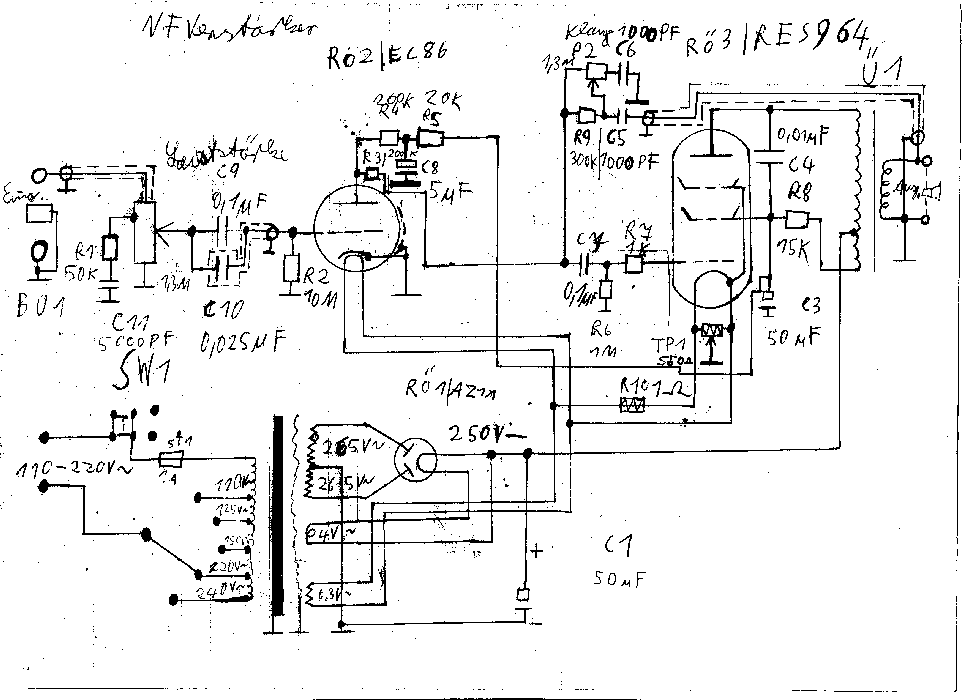 NF Verstärker
Rö2/EC86
Klang 1000PF
P2 C6
1,3M
Rö3/RES964
Ü1
200K 20K
R4 R5
R9 C5
300K 1000PF
0,01µF
C4
Lautstärke
C9
R3 200K
C8
5µF
Eing.
0,1µF
R8
15K
R1
50K
R2
10M
C7
0,1µF
R7
1K
BU1
C11
5000PF
1,3M
C10
0,025µF
R6
1M
TP1
C3
50µF
SW1
Rö1/AZ1n
R10 1Ω
250V
110-220V~
265V~
265V~
110V
125V~
150V
220V~
240V~
4V~
6,3V~
+
-
C1
50µF